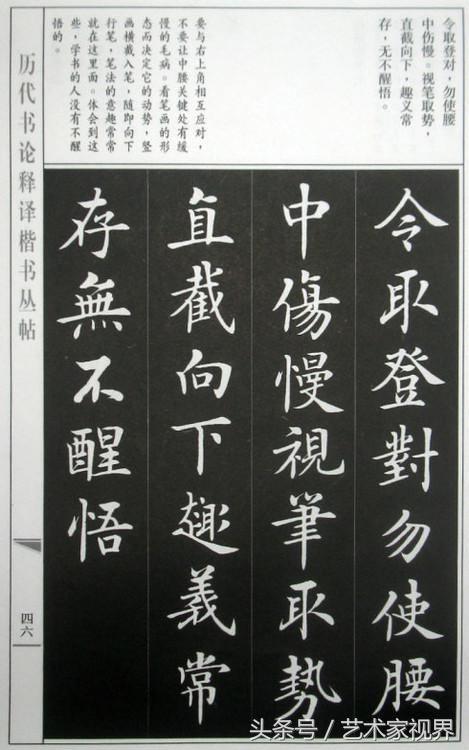 令取登对，勿使腰
中伤慢。视笔取势，
直截向下，趣义常
存，无不醒悟。
要与右上角相互应对，
不要让中腰关键处有缓
慢的毛病。看笔画的形
态而决定它的动势，竖
画横截入笔，随即向下
行笔，笔法的意趣常常
就在这里面。体会到这
些，学书的人没有不醒
悟的。
令取登對勿使腰
中傷慢視筆取勢
直截向下趣義常
存無不醒悟
历代书论释译楷书丛帖
四六
头条号／艺术家视界